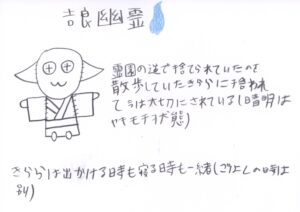 吉良幽霊
霊園の道で捨てられていたのを
散歩していたきららに拾われ
てうは大切にされている(晴明は
ヤキモチ状態)
きららは出かける時も寝る時も一緒(の時は
別)